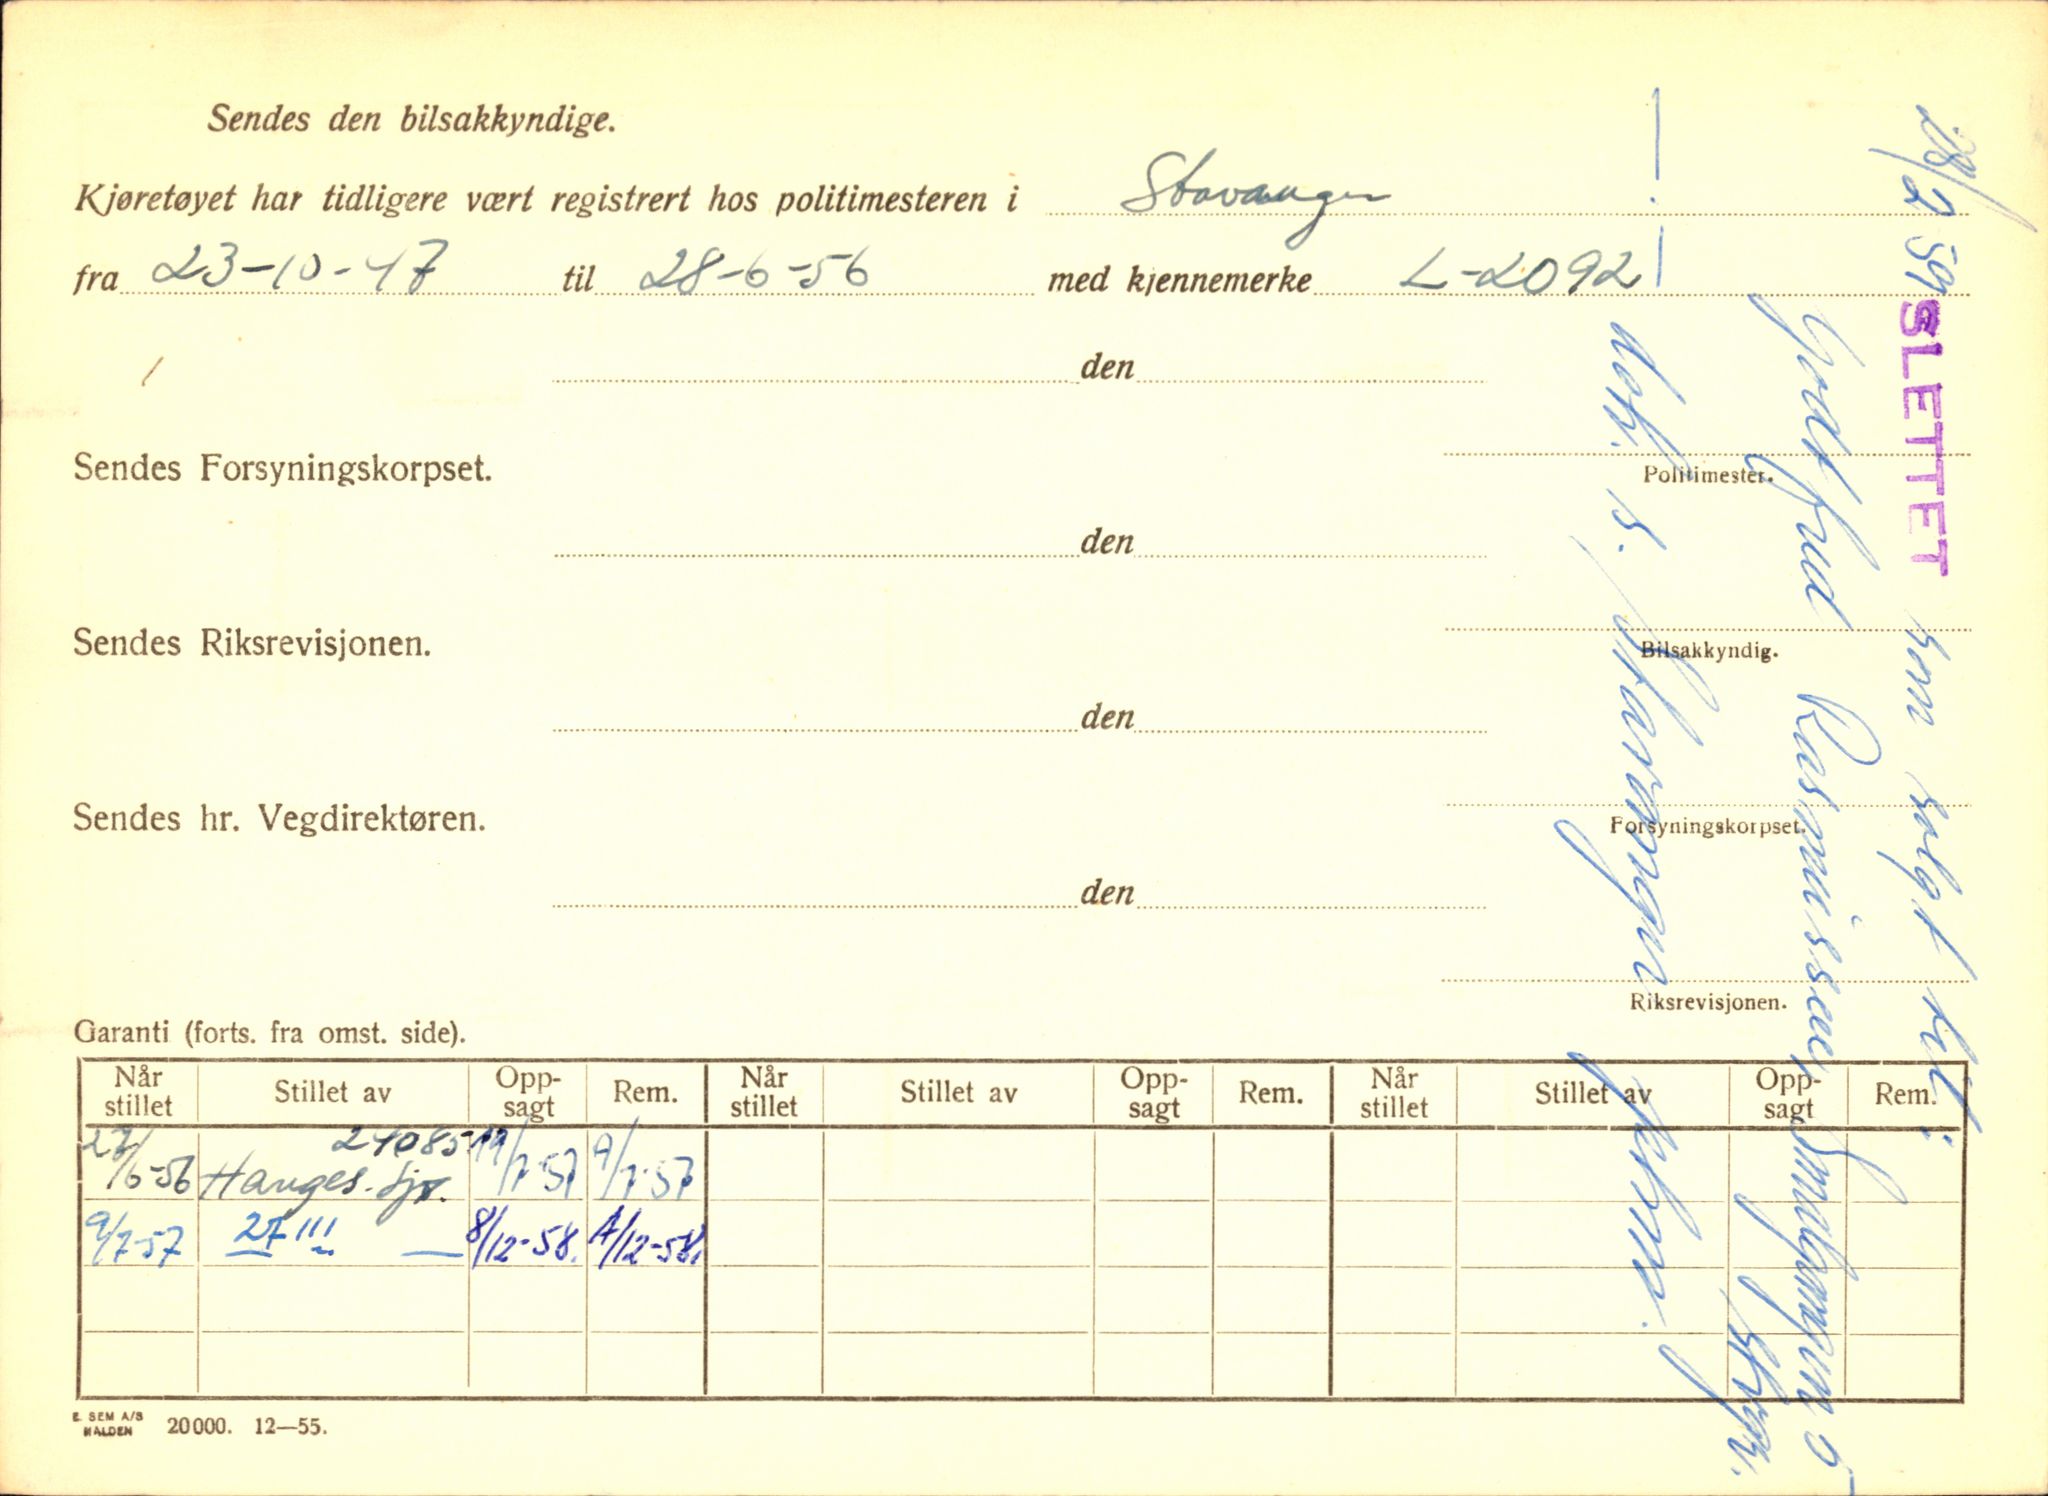 Sendes den bilsakkyndige.
Kjøretøyet har tidligere vært registrert hos politimesteren i Stavanger
fra 23-10-47 til 28-6-56 med kjennemerke L-2092
den
Politimester.
Sendes Forsyningskorpset.
den
Bilsakkyndig.
Sendes Riksrevisjonen.
den
Forsyningskorpset.
Sendes hr. Vegdirektøren.
den
Riksrevisjonen.
Garanti (forts. fra omst. side).
Når stillet Stillet av Opp-sagt Rem. Når stillet Stillet av Opp-sagt Rem. Når stillet Stillet av Opp-sagt Rem.
24085
/6-56 Hauges. /7-57 9/7-57
9/7-57 27111 8/12-58. /12-58.
E. SEM A/S
HALDEN 20000. 12—55.
28/2 59 SLETTET som solgt til:
Godtfred Rasmussen,
Stvgr.
dat. s. Stavanger